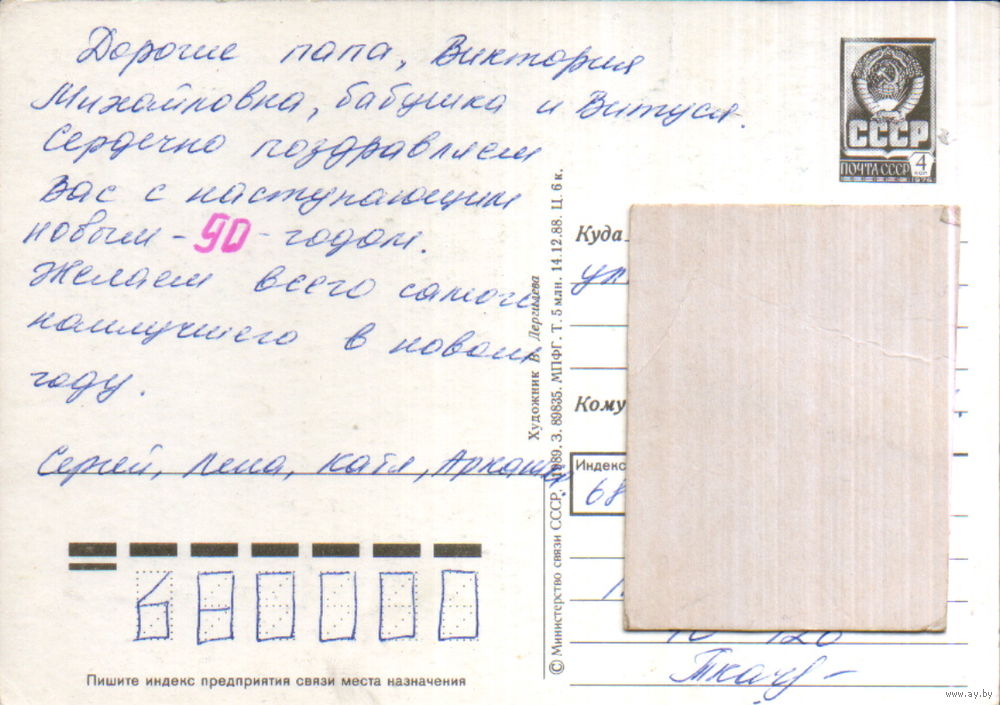 Дорогие папа, Виктория
Михайловна, бабушка и Витуся.
Сердечно поздравляем
Вас с наступающим
новым - 90 - годом.
Желаем всего самого
наилучшего в новом
году.
Сергей, Лена, Катя, Аркашка
Пишите индекс предприятия связи места назначения
© Министерство связи СССР, 1989. З. 89835. МПФГ. Т. 5 млн. 14.12.88. Ц. 6 к.
Художник В. Дергилева
СССР
ПОЧТА СССР 4 коп
1976
Куда
ул
Кому
Индекс
68
120
www.ay.by